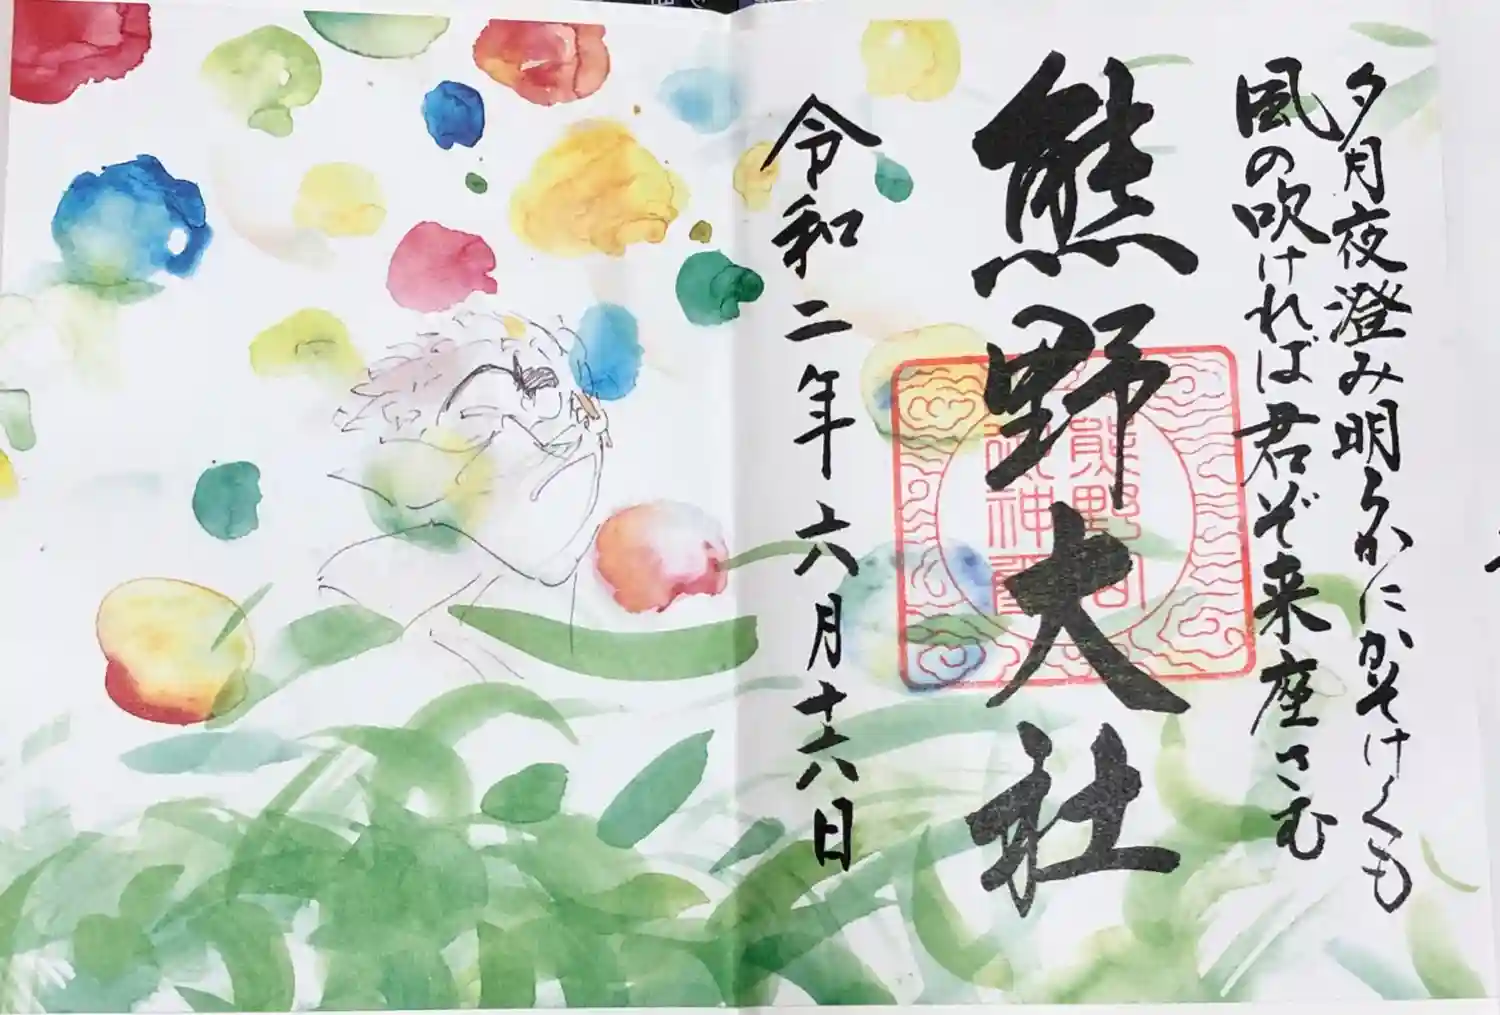 夕月夜澄み明らかにかそけくも
風の吹ければ君ぞ来座さむ
熊野大社
令和二年六月十六日